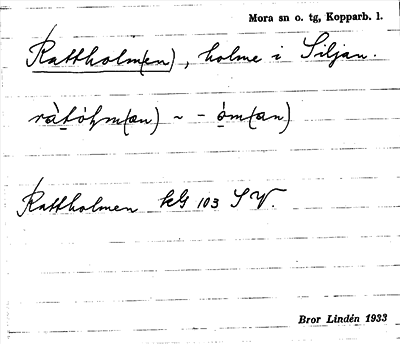 Mora sn o. tg, Kopparb. l.
Rattholm(en), holme i Siljan.
ràtóḥm(æn) ~ - óm(an)
Rattholmen kbl 103 SV.
Bror Lindén 1933